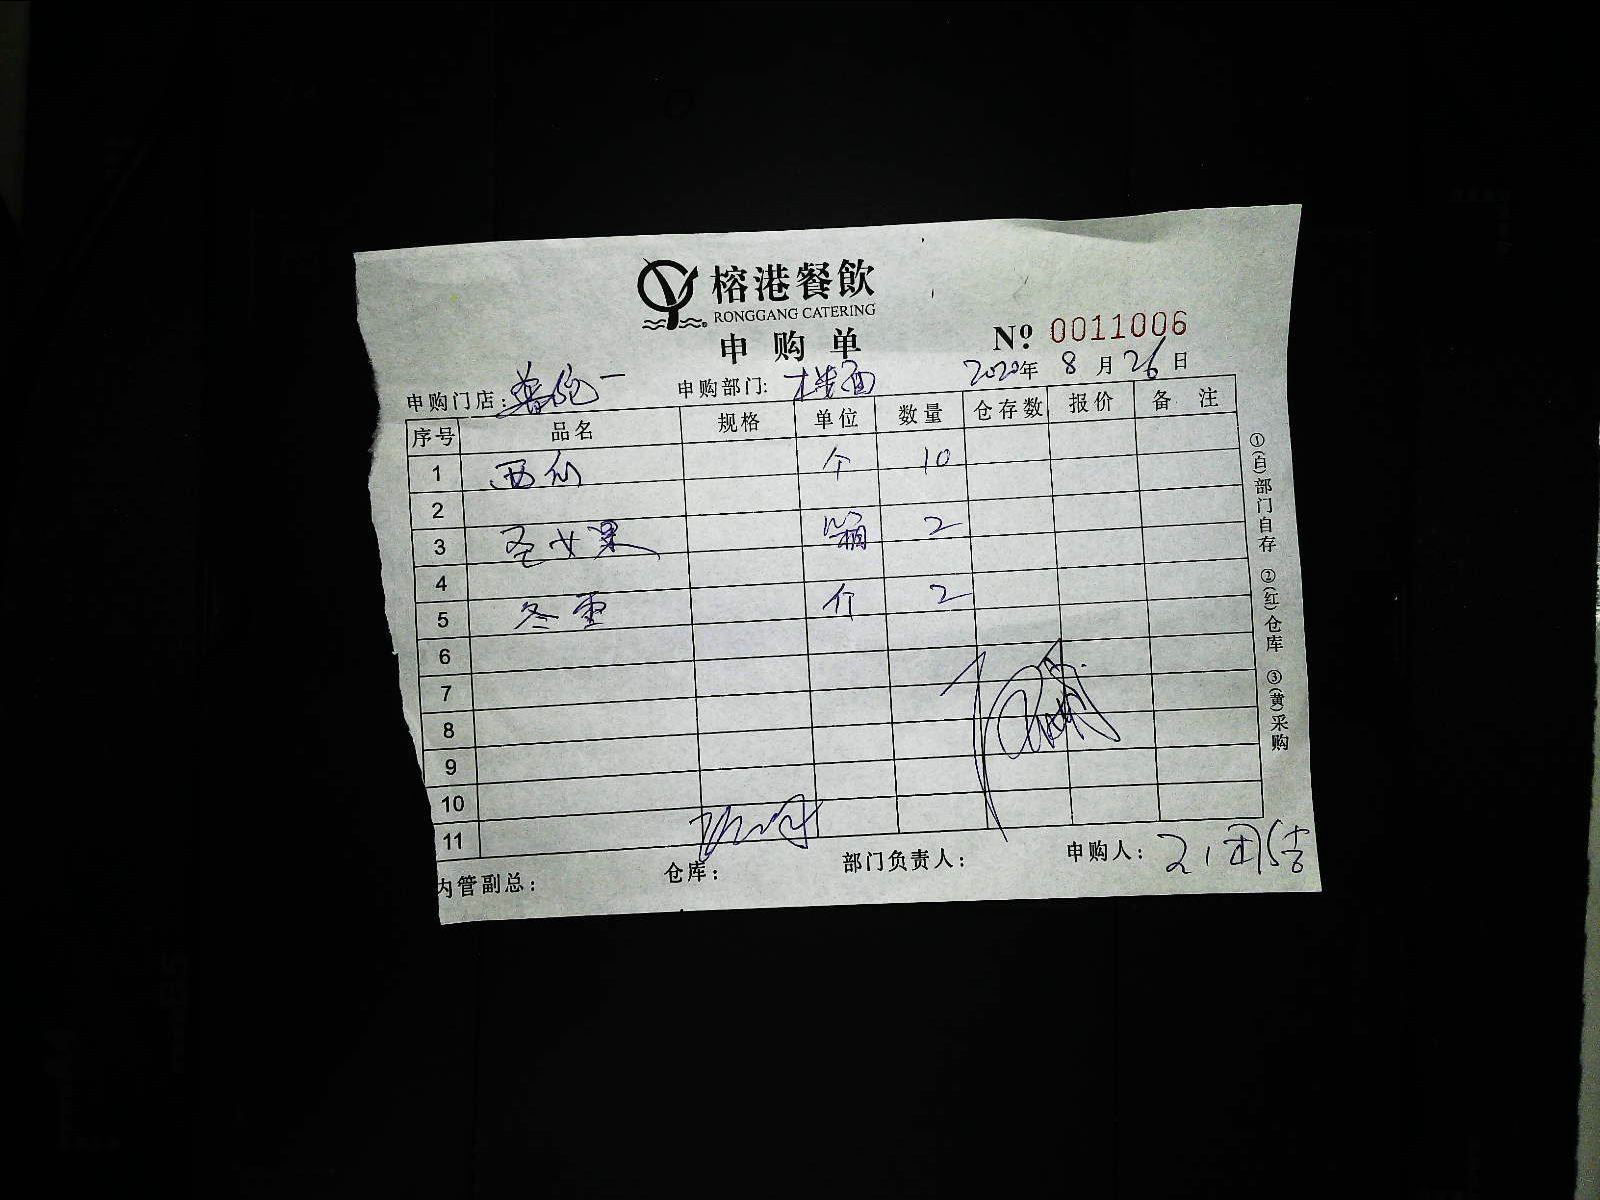 榕港餐飲
RONGGANG CATERING
申购单
Nº 0011006
申购门店: 申购部门: 楼面 2020年 8月 26日
序号 品名 规格 单位 数量 仓存数 报价 备注
1 西仙 个 10
2
3 圣女果 箱 2
4
5 冬枣 2
6
7
8
9
10
11
内管副总: 仓库: 部门负责人: 申购人:
①(白)部门自存 ②(红)仓库 ③(黄)采购